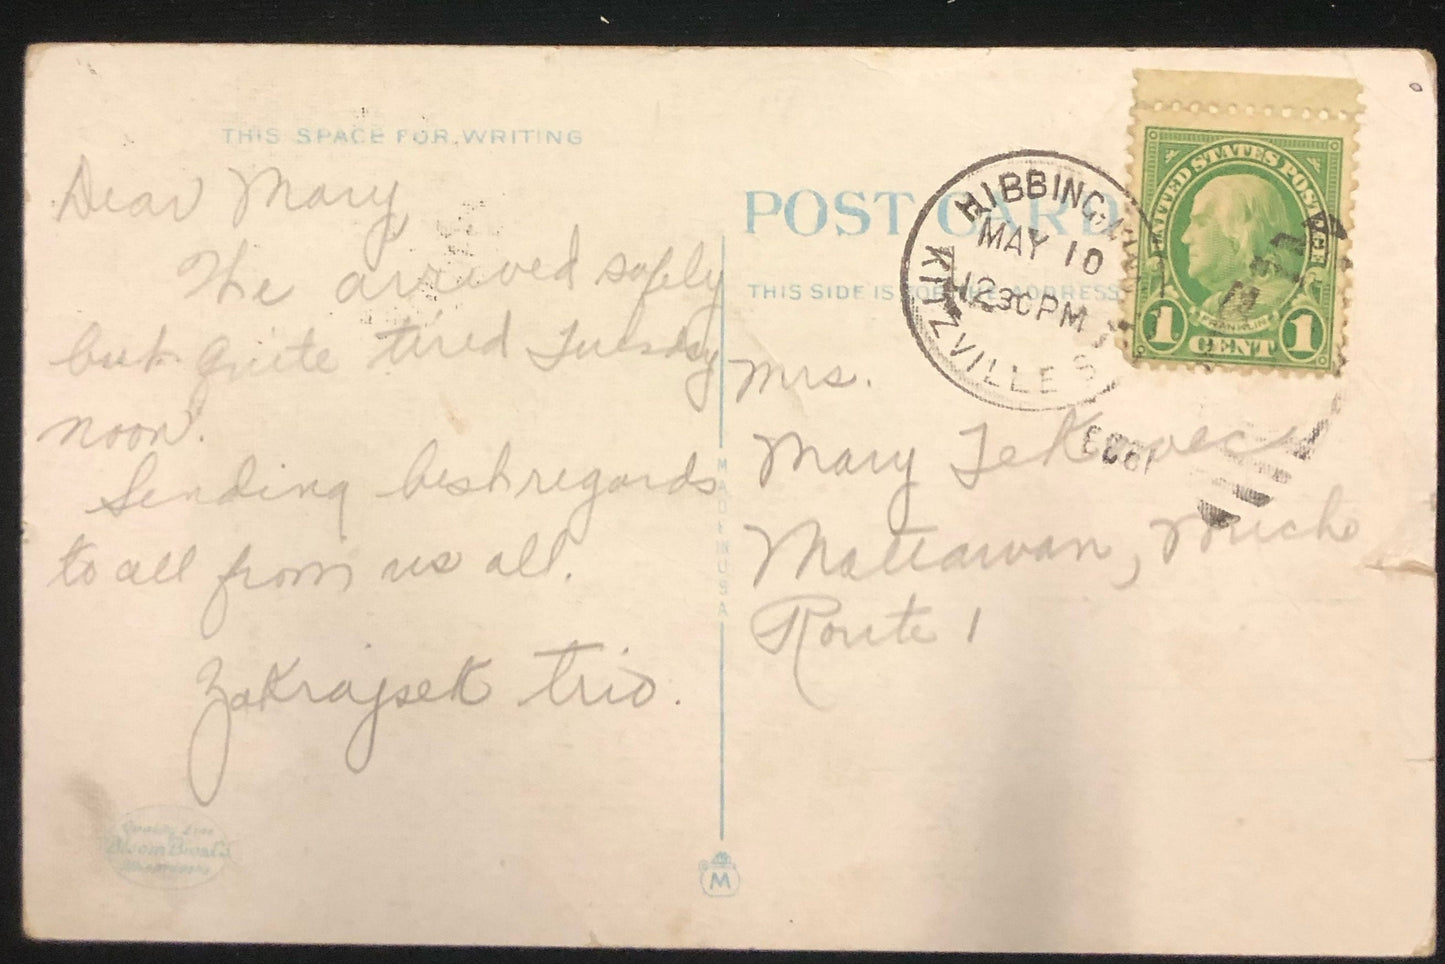 THIS SPACE FOR WRITING
Dear Mary
The arrived safely
but quite tired Tuesday
noon.
Sending best regards
to all from us all.
Zakrajsek trio.
Quality Line
Bloom Bros.
MADE IN USA
M
POST CARD
THIS SIDE IS FOR THE ADDRESS
HIBBING
MAY 10
12 30 PM
KITZVILLE
UNITED STATES POSTAGE
FRANKLIN
1 CENT 1
Mrs.
Mary Tekavec
Mattawan, Mich
Route 1